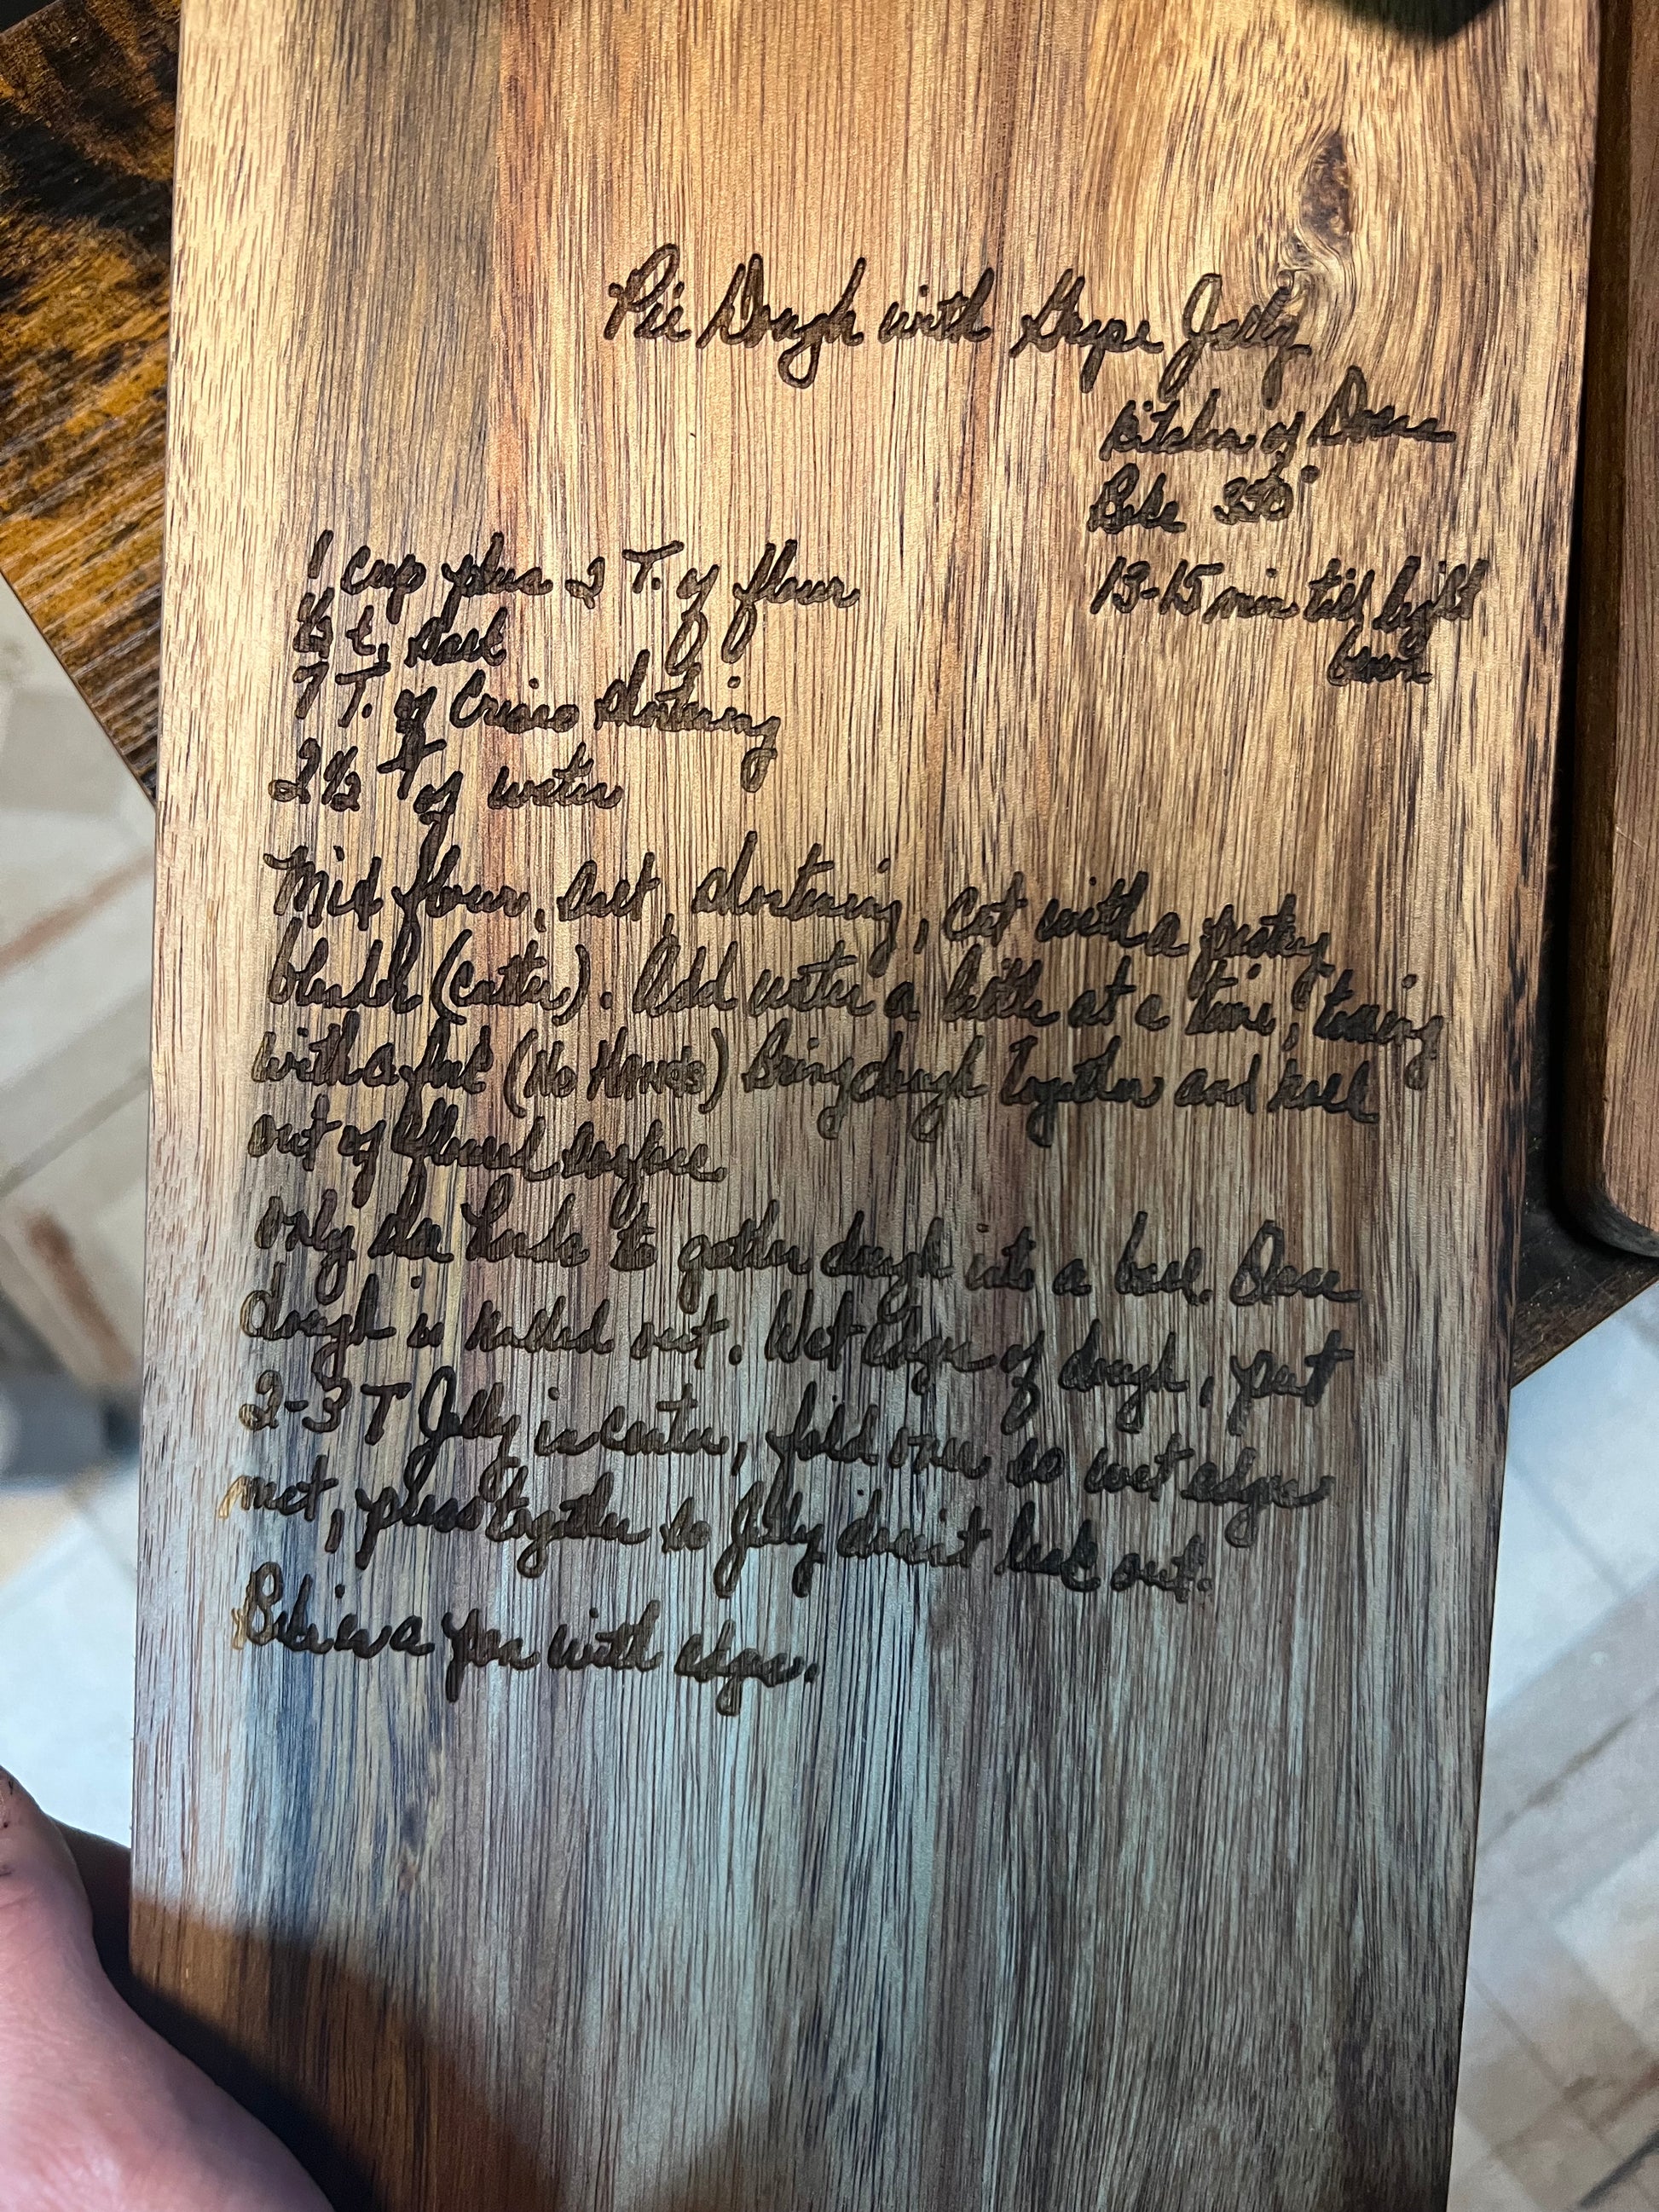 Pie Dough with Grape Jelly
Kitchen of
Bake 350°
13-15 min till light
brown
1 cup plus 2 T. of flour
½ t. salt
7 T. of Crisco shortening
2½ T of water
Mix flour, salt, shortening, cut with a pastry
blender (cutter). Add water a little at a time, tossing
with a fork (No Hands) Bring dough together and roll
out of floured surface
only use hands to gather dough into a ball. Once
dough is rolled out. Wet edges of dough, put
2-3 T Jelly in center, fold over so wet edges
met, press together so Jelly doesn't leak out.
Bake in a pan with edges.